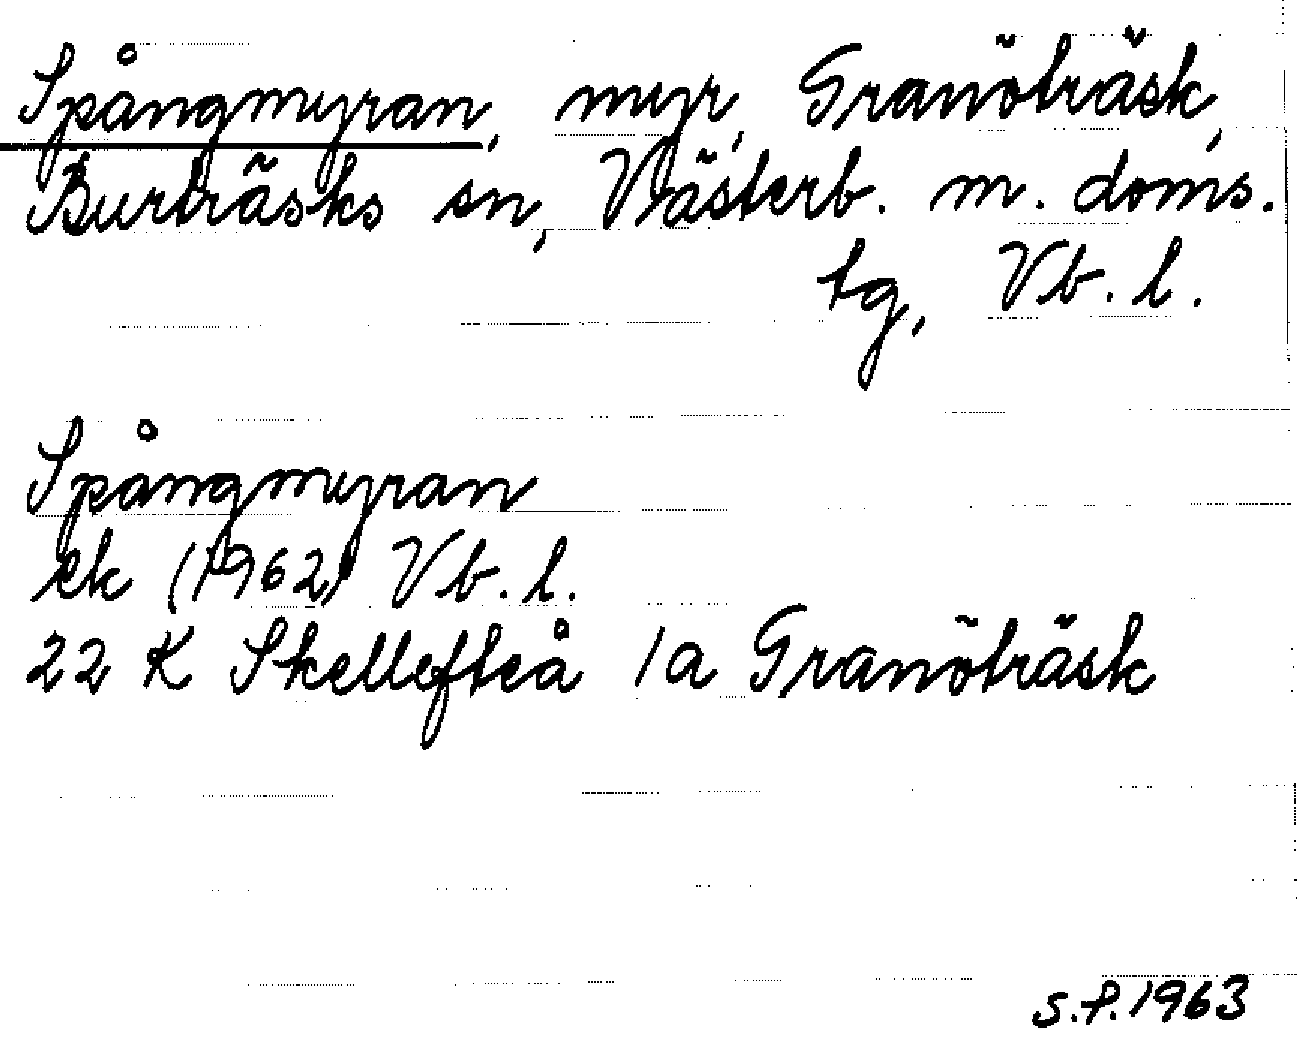 Spångmyran, myr, Granöträsk,
Burträsks sn, Västerb. m. doms.
tg, Vb. l.
Spångmyran
ek (1962) Vb. l.
22 K Skellefteå 1a Granöträsk
S.P. 1963